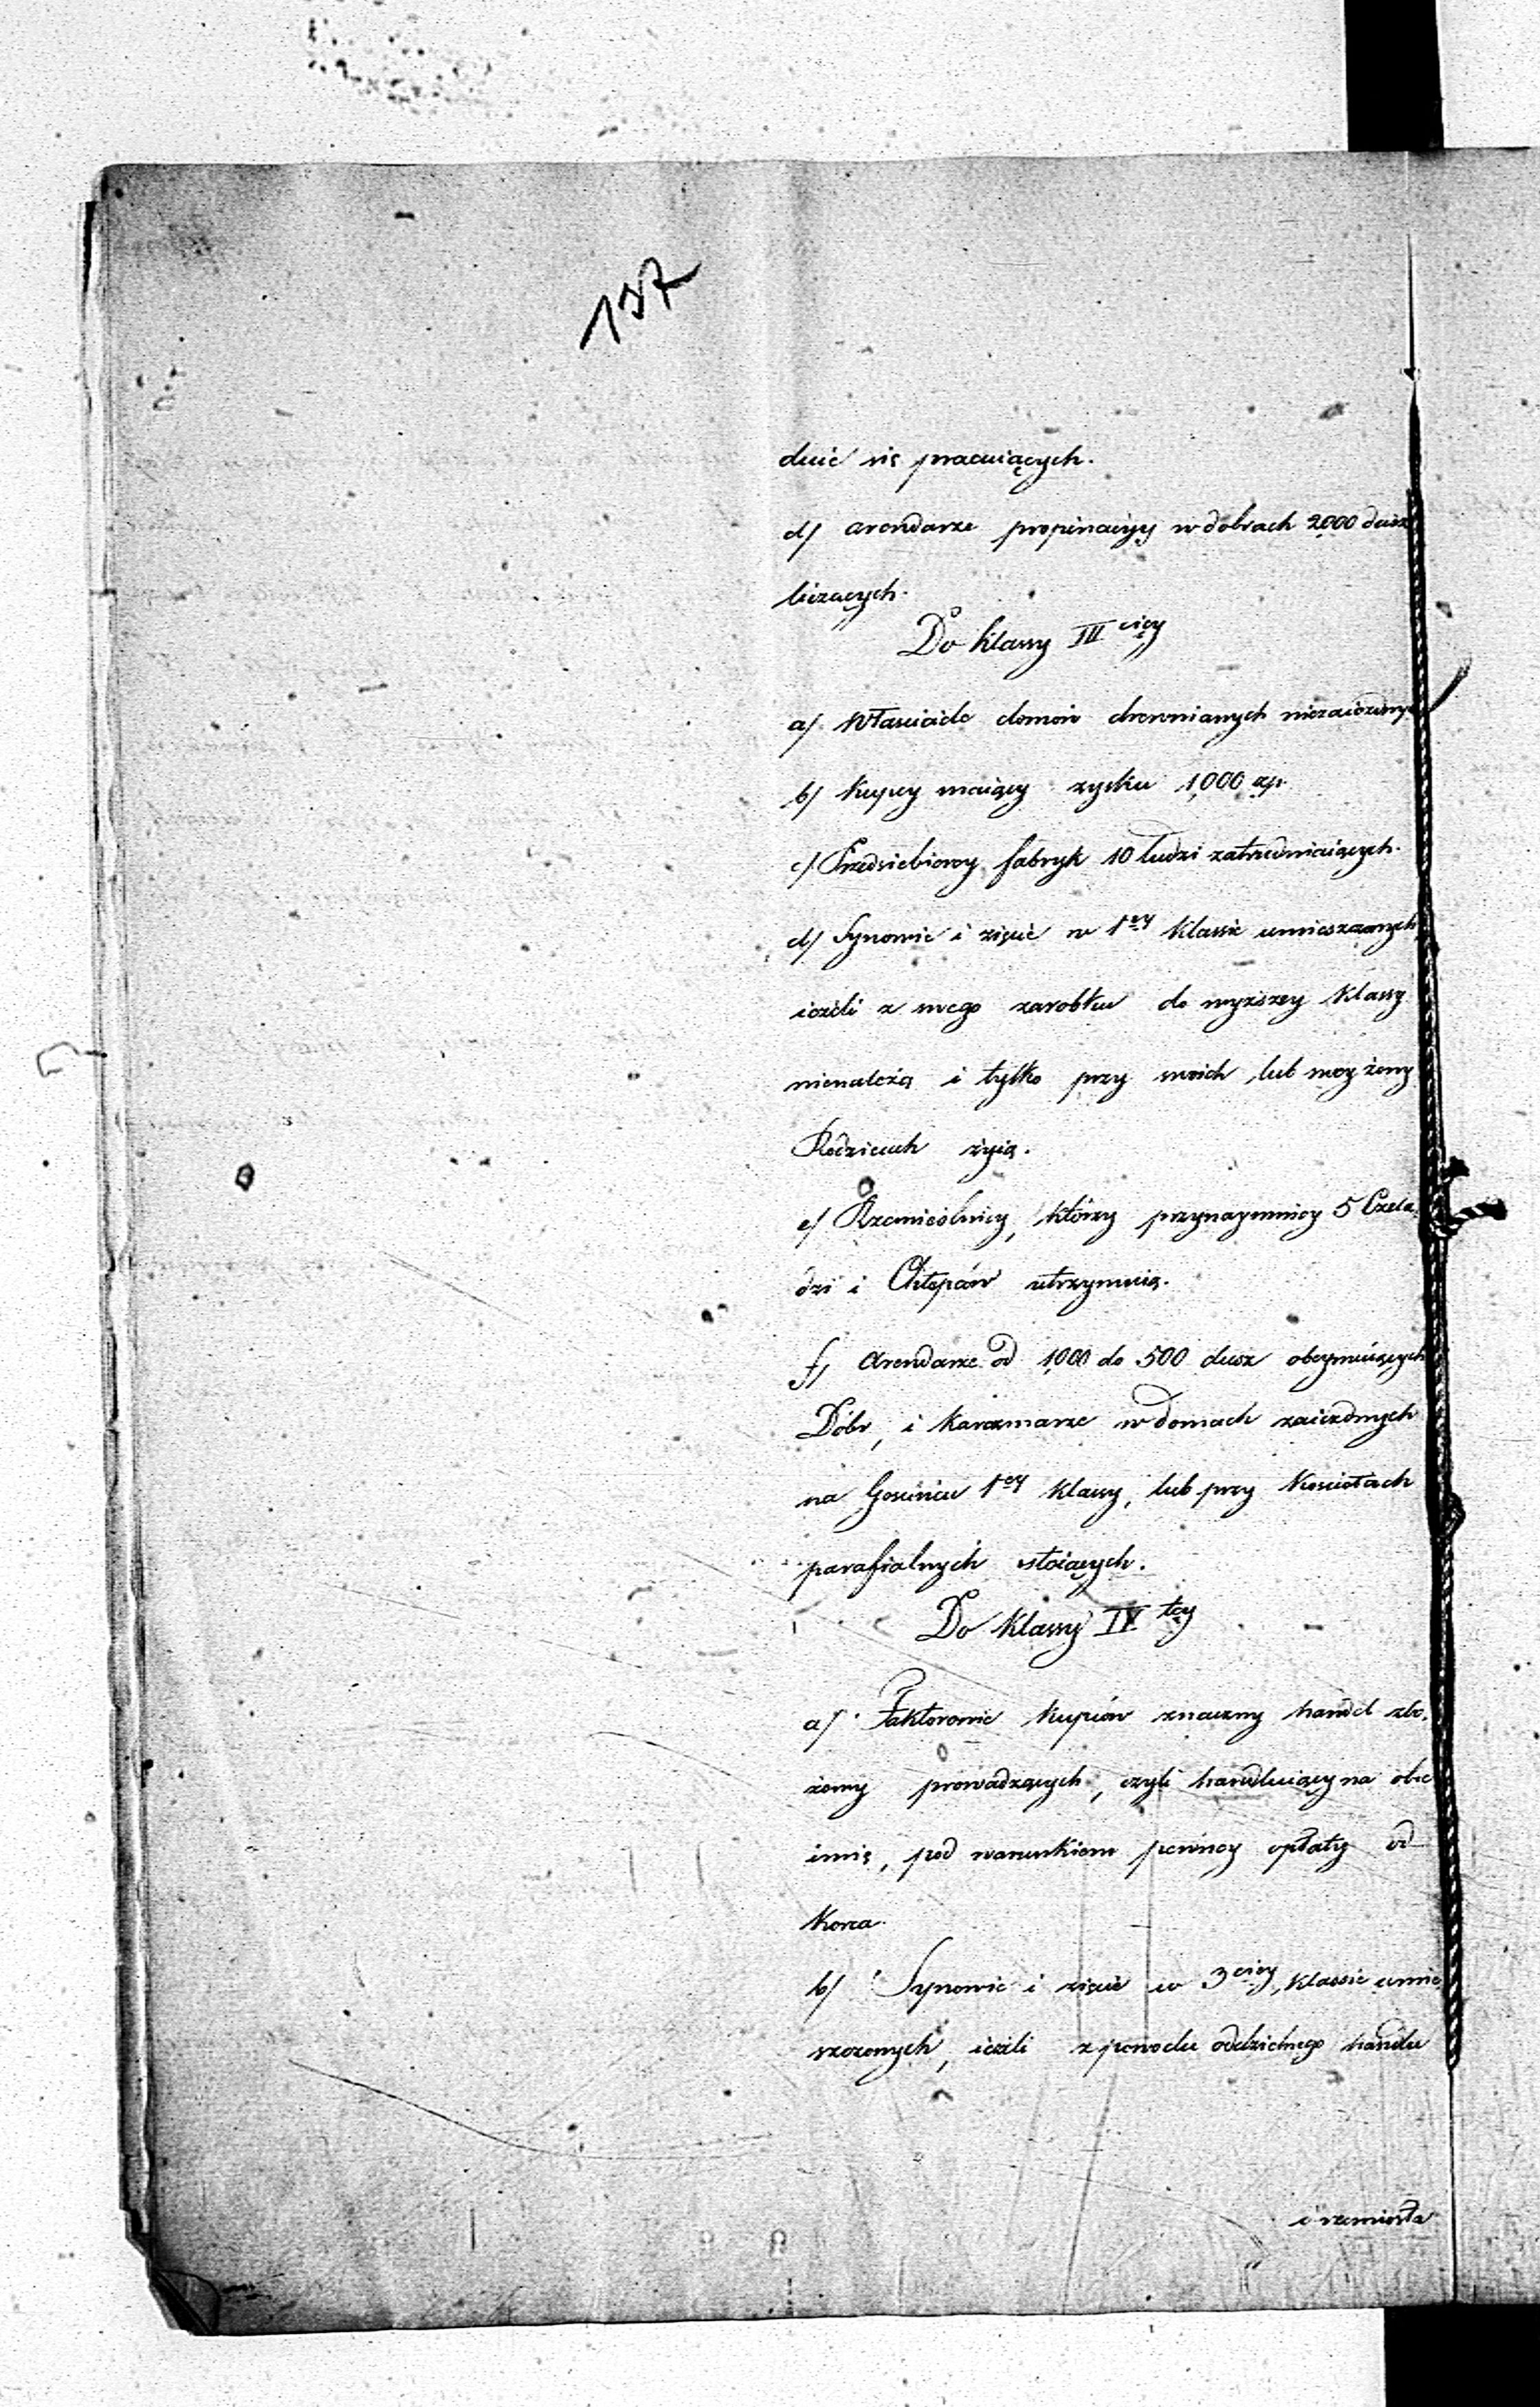 137
dzić się pracuiących.
d/ arendarze propinacyy w dobrach 2000 dusz
liczących.
Do klassy III ciéy
a/ Własciciele domów drewnianych niezaiezdnych
b/ Kupcy maiący zysku 1000 zp.
c/ Przedsiebiorcy fabryk 10 ludzi zatrudniaiących.
d/ Synowie i zięcie w 1éy Klassie umieszczonych,
ieżeli z swego zarobku do wyższey Klassy
nienależą i tylko przy swoich, lub swey żony
Rodzicach żyią.
e/ Rzemieślnicy, którzy przynaymniey 5 Czela,
dzi i Chłopców utrzymuią.
f/ Arendarze od 1000 do 500 dusz obeymuiących
Dóbr, i Karczmarze w domach zaiezdnych
na Gosińcu 1éy klassy, lub przy Kosciołach
parafialnych stoiących.
Do klassy IV téy
a/ Faktorowie kupców znaczny handel zbo,
żowy prowadzących, czyli handluiący na obce
imie, pod warunkiem pewney opłaty od
Korca.
b/ Synowie i zięcie w 3ciéy, klassie umie
szczonych, ieżeli z powodu oddzielnego handlu
i rzemiosła